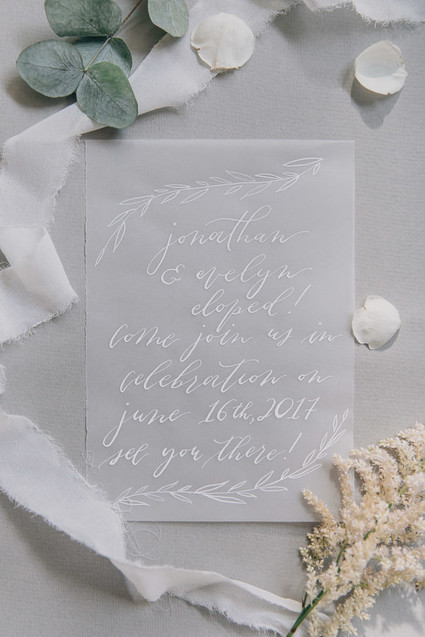 jonathan
& evelyn
eloped!
come join us in
celebration on
june 16th, 2017
see you there!